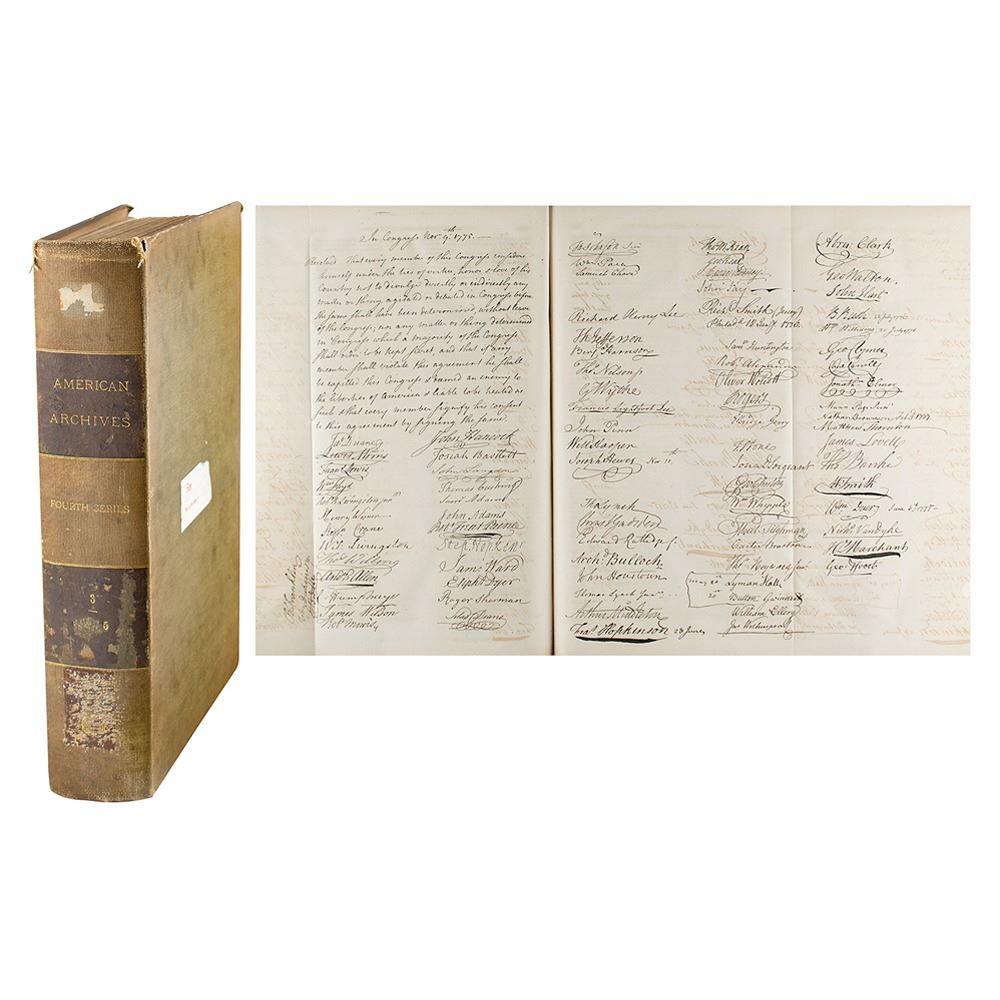 AMERICAN
ARCHIVES
FOURTH SERIES
3
5
In Congress Nov. 9th. 1775.
Resolved That every member of this Congress considers
himself under the ties of virtue, honor & love of his
Country not to divulge directly or indirectly any
matter or thing agitated or debated in Congress before
the same shall have been determined, without leave
of the Congress; nor any matter or thing determined
in Congress which a majority of the Congress
shall order to be kept secret, and that if any
member shall violate this agreement he shall
be expelled this Congress & deemed an enemy to
the liberties of America & liable to be treated as
such & that every member signify his consent
to this agreement by signing the same.
Jas. Duane
Lewis Morris
Fran Lewis
Wm Floyd
Henry Wisner
Wil. Livingston
Thos Willing
Andw. Allen
C Humphreys
James Wilson
Robt Morris
John Hancock
Josiah Bartlett
John Langdon
Thomas Cushing
Saml Adams
John Adams
Robt Treat Paine
Step. Hopkins
Sam: Ward
Eliphts Dyer
Roger Sherman
Silas Deane
B Franklin
Ts Johnson Junr
Wm Paca
Samuel Chase
Richard Henry Lee
Th Jefferson
Benj Harrison
Thos. Nelson jr
G Wythe
Francis Lightfoot Lee
John Penn
Will Hooper
Joseph Hewes Nov 10th
Tho Lynch
Christ Gadsden
Edward Rutledge
Archd. Bulloch
John Houstoun
Thomas Lynch Junr.
Arthur Middleton
Fras. Hopkinson 28 June
Tho M:Kean
Geo Read
Caesar Rodney
John Jay
Richd. Smith (Jersey)
Saml Huntington
Robt. Alexander
Oliver Wolcott
Elbridge Gerry
T Stone
Jona D Sergeant
Geo Clinton
Wm Whipple
Carter Braxton
Thos. Heyward Junr
May 20th Lyman Hall
20th Button Gwinnett
William Ellery
Jno Witherspoon
Abra: Clark
Geo Walton.
John Hart
Geo Clymer
Jonath Elmer
Mann Page Junr
Nathan Brownson
Matthew Thornton
James Lovell
Thos Burke
Nichs Vandyke
Hy. Marchant
Geo Frost